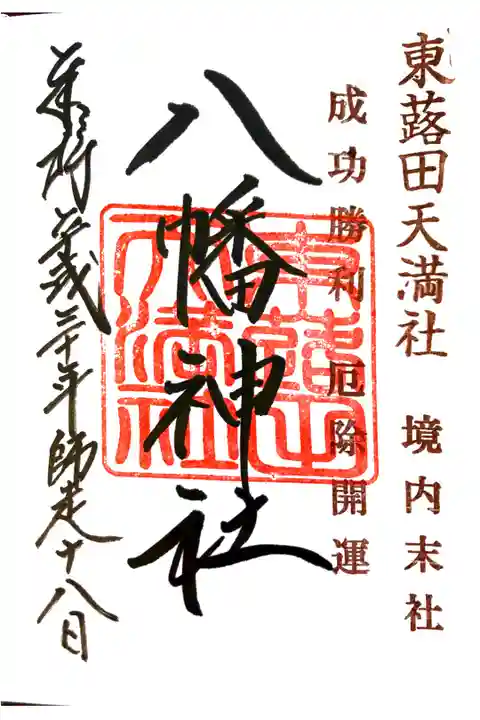 東蕗田天満社 境内末社
成功勝利 厄除開運
八幡神社
東蕗田天満社
奉拝 平成三十年師走十八日